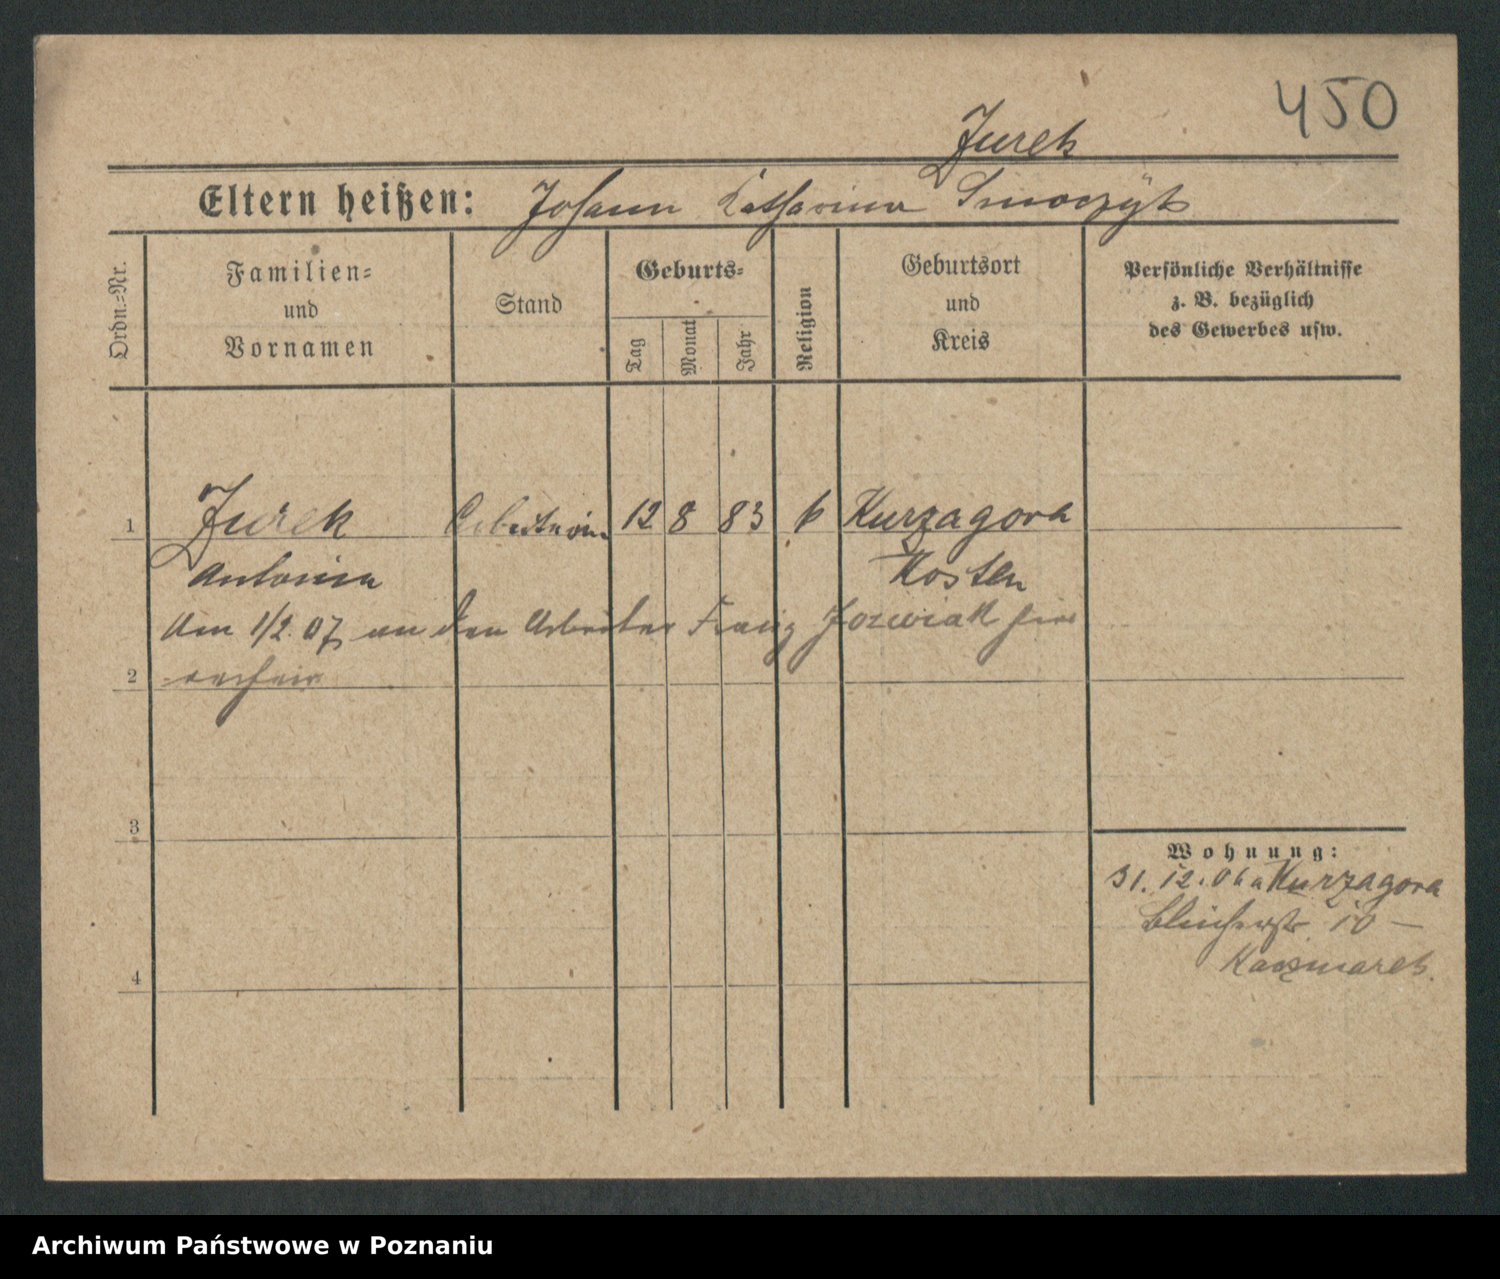 450
Jurek
Eltern heißen: Johann Katharina Smoczyk
Ordn.=Nr.
Familien=
und
Vornamen
Stand
Geburts=
Tag
Monat
Jahr
Religion
Geburtsort
und
Kreis
Persönliche Verhältnisse
z. B. bezüglich
des Gewerbes usw.
1 Jurek Arbeiterin 12 8 83 k Kurzagora
Antonina Kosten
Am 1/2. 07 an den Arbeiter Franz Jozwiak hier
2
3
4
Wohnung:
31. 12. 06 a Kurzagora
Blücherstr 10 –
Kaczmarek.
Archiwum Państwowe w Poznaniu